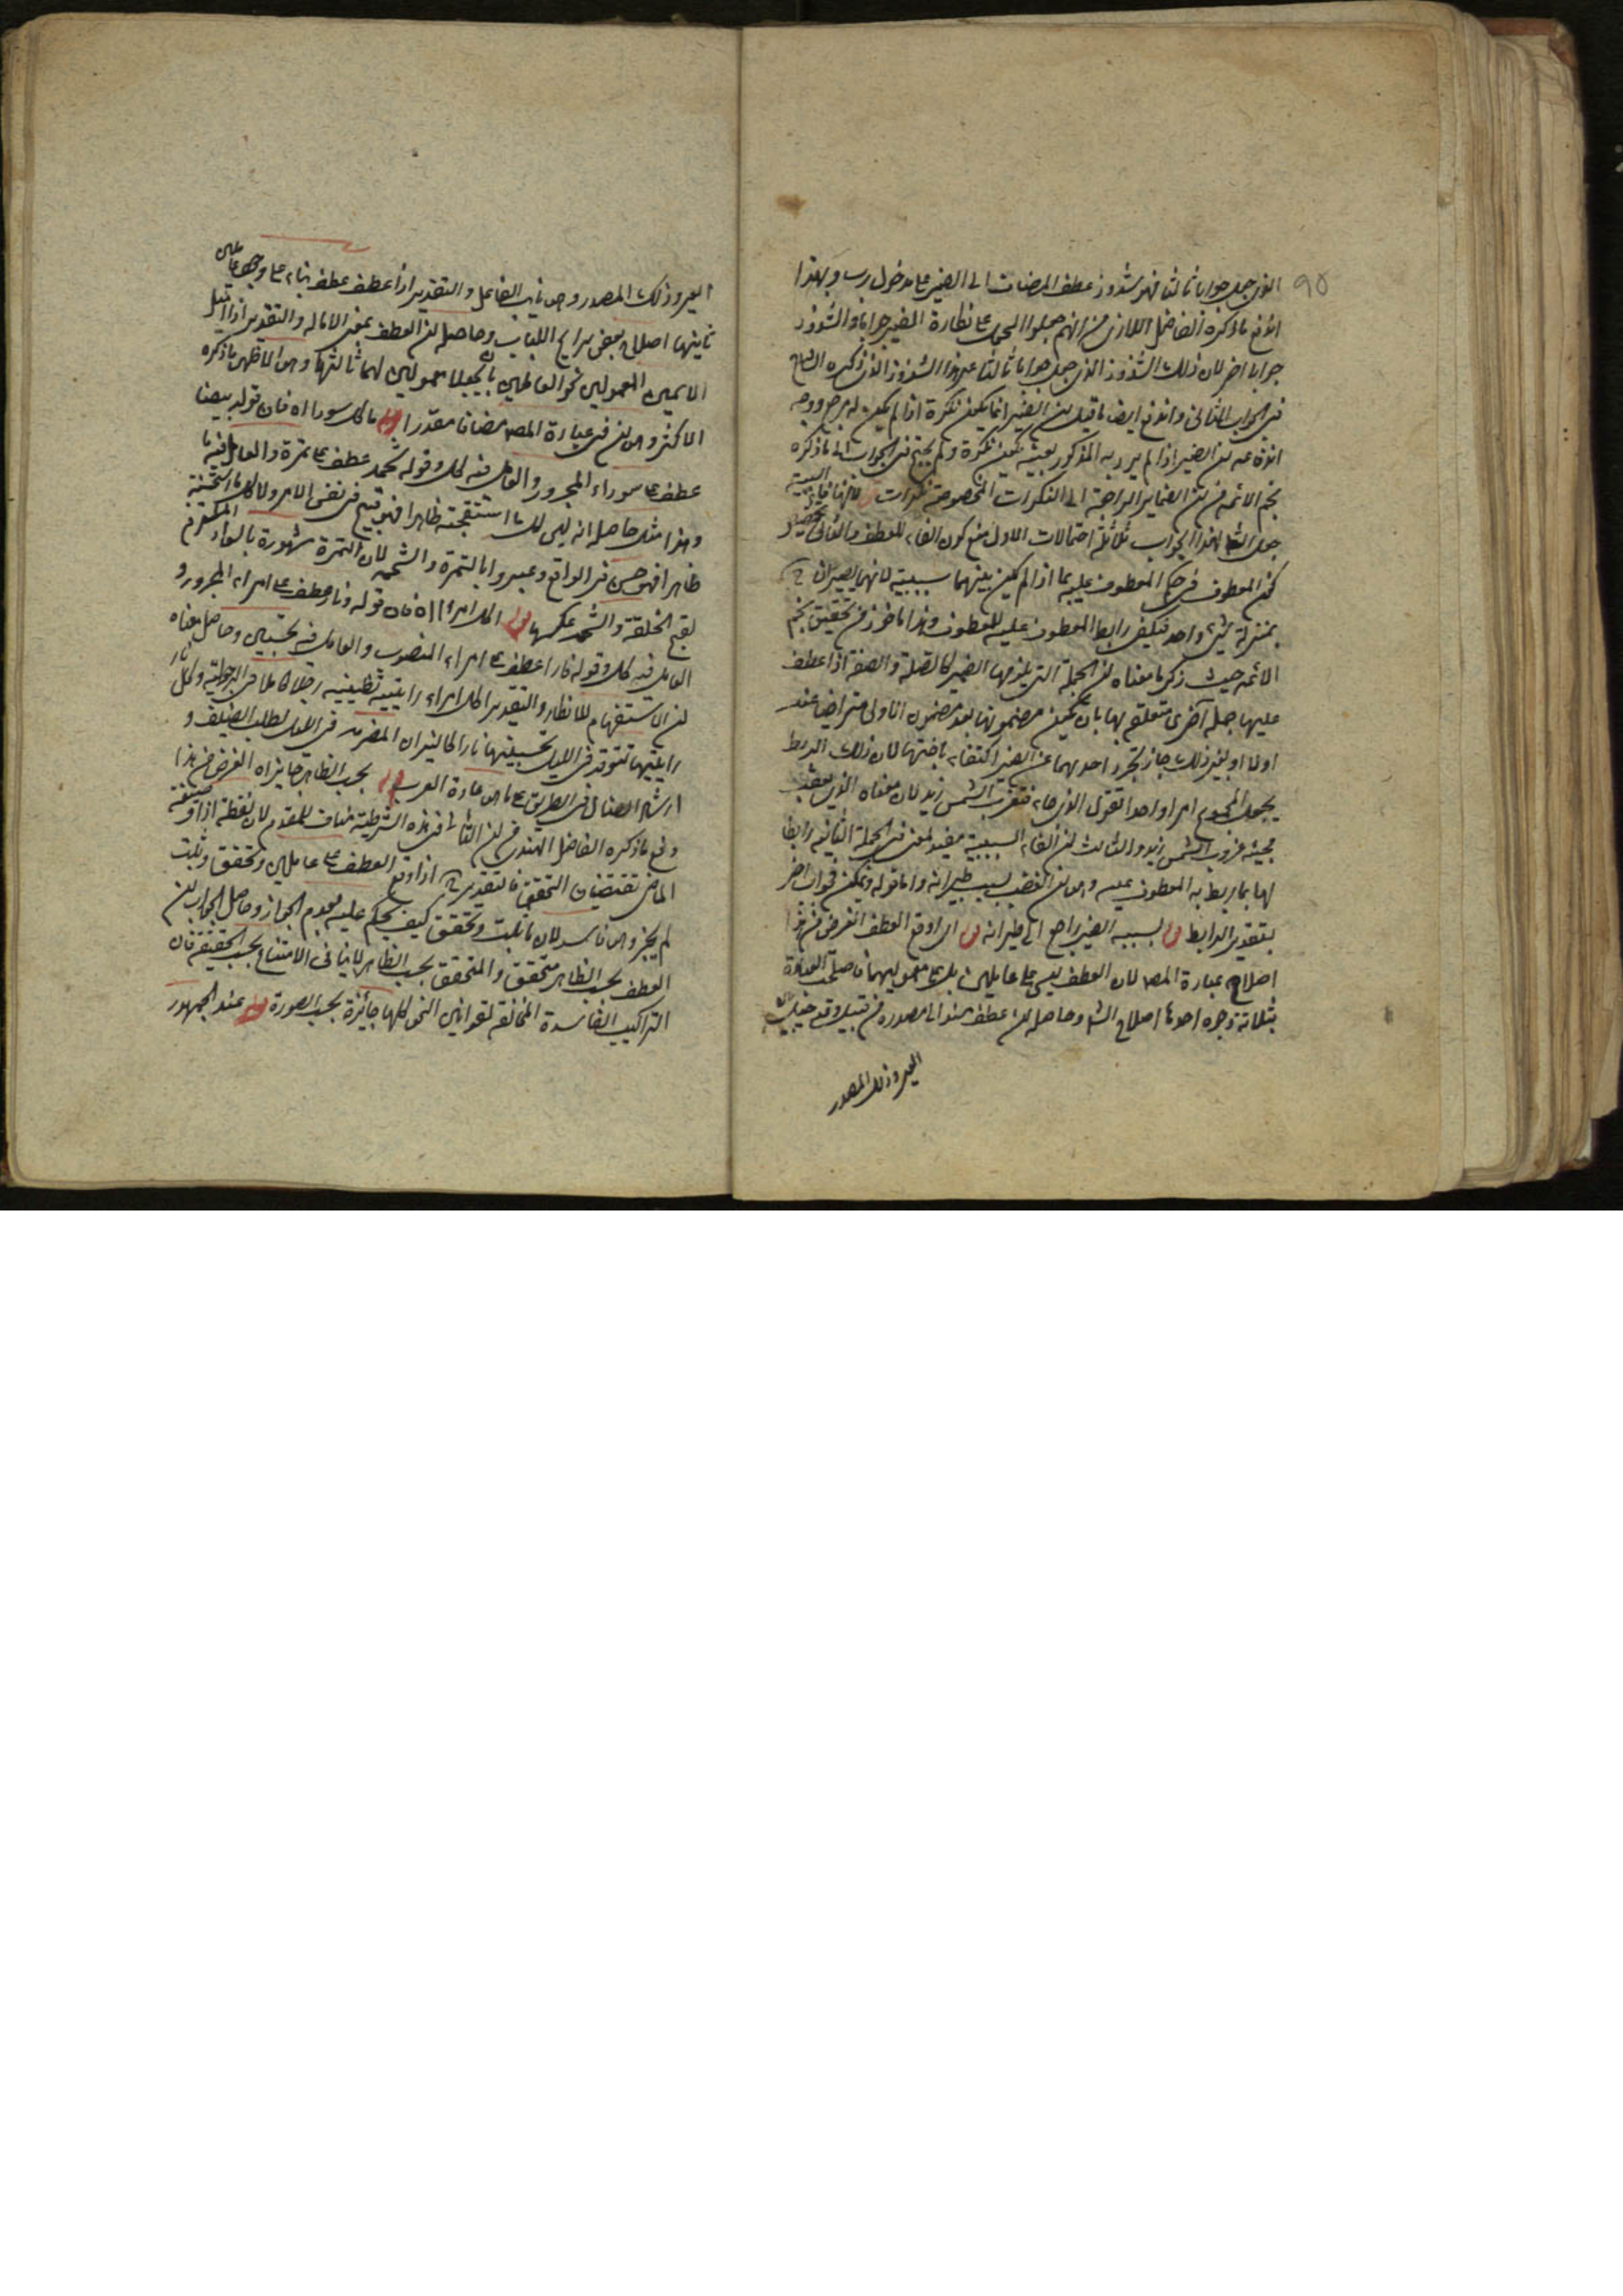 ٩٥
الذى جعل جوابا ثالثا فهو شذوذ عطف المضاف الى الضمير على مدخول رب وبهذا
اندفع ما ذكره الفاضل اللارى من انهم جعلوا الحمل على نكارة الضمير جوابا والشذوذ
جوابا اخر لان ذلك الشذوذ الذى جعل جوابا ثالثا غير هذا الشذوذ الذى ذكره الشارح
فى الجواب الثانى واندفع ايضا ما قيل ان الضمير انما يكون نكرة اذا لم يكن له مرجع ووجه
اندفاعه ان الضمير اذا لم يرد به المذكور بعينه يكون نكرة ولم يحتج فى الجواب الى ما ذكره
نجم الائمة من ان الضماير الراجعة الى النكرات المخصوصة نكرات لانها فاء السببية
جعل الش لهذا الجواب ثلثة احتمالات الاول منع كون الفاء للعطف والثانى تخصيص
كون المعطوف فى حكم المعطوف عليه بما اذا لم يكن بينهما سببية لانهما يصيران ح
بمنزلة شىء واحد فيكفى رابط المعطوف عليه للمعطوف وهذا ماخوذ من تحقيق نجم
الائمة حيث ذكر ما معناه ان الجملة التى يلزمها الضمير كالصلة والصفة اذا عطف
عليها جملة اخرى متعلقة بها بان يكون مضمونها بعد مضمون الاولى متراخيا عنه
اولا او بغير ذلك جاز تجرد احدهما عن الضمير اكتفاء باختها لان ذلك الربط
يجعل المجموع امرا واحدا تقول الذى جاء فتغرب الشمس زيد لان معناه الذى يعقب
مجيئه غروب الشمس زيد والثالث ان الفاء السببية مفيد لمعنى فى الجملة الثانية رابط
لها بما ربط به المعطوف عليه وهو ان الغضب بسبب طيرانه واما قوله ويمكن فجواب اخر
بتقدير الرابط قوله بسببه الضمير راجع الى طيرانه قوله اى اوقع العطف الغرض من هذا
اصلاح عبارة المص لان العطف ليس على عاملين بل على معموليهما فاصلحت العبارة
بثلاثة وجوه احدها اصلاح الش وحاصله ان عطف مسند الى مصدره من قبيل وقد حيل بين
العير وذلك المصدر
العير وذلك المصدر وهو نايب الفاعل والتقدير اذا عطف عطف بناء على وجود عاملين
ثانيها اصلاح بعض شراح اللباب وحاصله ان العطف بمعنى الامالة والتقدير اذا اميل
الاسمين المعمولين نحو العاملين بان يجعلا معمولين لهما ثالثها وهو الاظهر ما ذكره
الاكثر وهو ان فى عبارة المص مضافا مقدرا قوله ما كل سوداء اه فان قوله بيضا
عطف على سوداء المجرور والعامل فيه كل وقوله شحمة عطف على تمرة والعامل فيه ما
وهذا مثل حاصله انه ليس كل ما استقبحته ظاهرا فهو قبيح فى نفس الامر ولا كل ما استحسنته
ظاهرا فهو حسن فى الواقع وعبروا بالتمرة والشحمة لان التمرة مشهورة بالسواد المستلزم
لقبح الخلقة والشحمة عكسها قوله اكل امرء اه فان قوله ونار عطف على امرء المجرور و
العامل فيه كل وقوله نارا عطف على امرء المنصوب والعامل فيه تحسبين وحاصل معناه
ان الاستفهام للانكار والتقدير اكل امرء رايتيه تظنينه رجلا كاملا فى الرجولية وكل نار
رايتيها تتوقد فى الليل تحسبينها نارا كالنيران المضرمة فى الليل لطلب الضيف و
ارشاد الضالين فى الطريق على ما هو عادة العرب قوله بحسب الظاهر جايزاه الغرض من هذا
دفع ما ذكره الفاضل الهندى من ان التالى فى هذه الشرطية مناف للمقدم لان لفظة اذا وصيغة
الماضى تقتضيان التحقق فالتقدير ح اذا وقع العطف على عاملين وتحقق وثبت
لم يجز وهو فاسد لان ما ثبت وتحقق كيف يحكم عليه بعدم الجواز وحاصل الجواب ان
العطف بحسب الظاهر متحقق والمتحقق بحسب الظاهر لا ينافى الامتناع بحسب الحقيقة فان
التراكيب الفاسدة المخالفة لقوانين النحو كلها جائزة بحسب الصورة قوله عند الجمهور